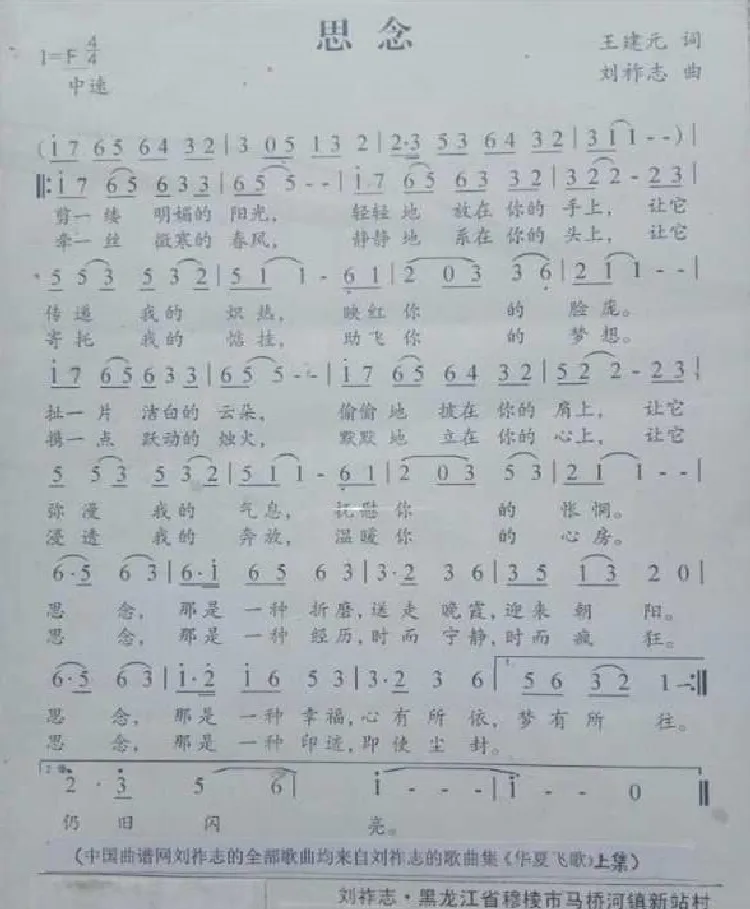 思念
1=F 4/4
王建元 词
中速
刘祚志 曲
(i 7 6 5 6 4 3 2 | 3 0 5 1 3 2 | 2·3 5 3 6 4 3 2 | 3 1 1 - -) |
‖: i 7 6 5 6 3 3 | 6 5 5 - - | i 7 6 5 6 3 3 2 | 3 2 2 - 2 3 |
剪一缕 明媚的 阳光, 轻轻 地 放在 你的 手上, 让它
牵一丝 微寒的 春风, 静静 地 系在 你的 头上, 让它
5 5 3 5 3 2 | 5 1 1 - 6 1 | 2 0 3 3 6 | 2 1 1 - - |
传递 我的 炽热, 映红 你 的 脸庞。
寄托 我的 惦挂, 助飞 你 的 梦想。
i 7 6 5 6 3 3 | 6 5 5 - - | i 7 6 5 6 4 3 2 | 5 2 2 - 2 3 |
扯一片 洁白的 云朵, 偷偷 地 披在 你的 肩上, 让它
携一点 跃动的 烛火, 默默 地 立在 你的 心上, 让它
5 5 3 5 3 2 | 5 1 1 - 6 1 | 2 0 3 5 3 | 2 1 1 - - |
弥漫 我的 气息, 抚慰 你 的 怅惘。
浸透 我的 奔放, 温暖 你 的 心房。
6·5 6 3 | 6·i 6 5 6 3 | 3·2 3 6 | 3 5 1 3 2 0 |
思 念, 那是 一种 折磨, 送走 晚霞, 迎来 朝 阳。
思 念, 那是 一种 经历, 时而 宁静, 时而 疯 狂。
6·5 6 3 | i·2 i 6 5 3 | 3·2 3 6 | 1. 5 6 3 2 1 - :‖
思 念, 那是 一种 幸福, 心有 所依, 梦有 所 往。
思 念, 那是 一种 印迹, 即使 尘封。
2. 2·3 5 6 | i - - - | i - - 0 ‖
仍旧 闪 亮。
(中国曲谱网刘祚志的全部歌曲均来自刘祚志的歌曲集《华夏飞歌》上集)
刘祚志·黑龙江省穆棱市马桥河镇新站村